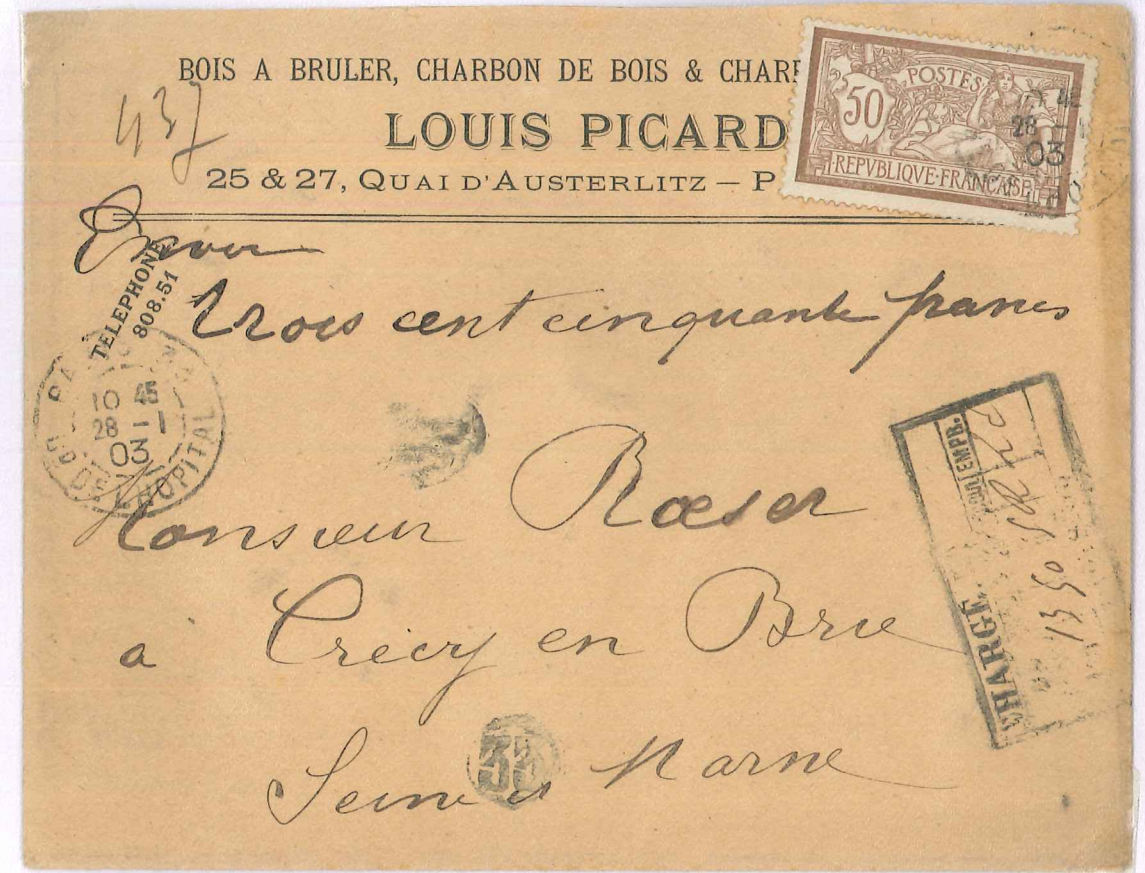 BOIS A BRULER, CHARBON DE BOIS &
LOUIS PICARD
25 & 27, QUAI D'AUSTERLITZ –
437
POSTES
50
REPVBLIQVE·FRANÇAISE
28
03
Envoi
TÉLÉPHONE
808.51
Trois cent cinquante francs
10 45
28 - 1
03
BD DE L'HOPITAL
Monsieur Rœser
a Crécy en Brie
Seine et Marne
33
CHARGÉ.